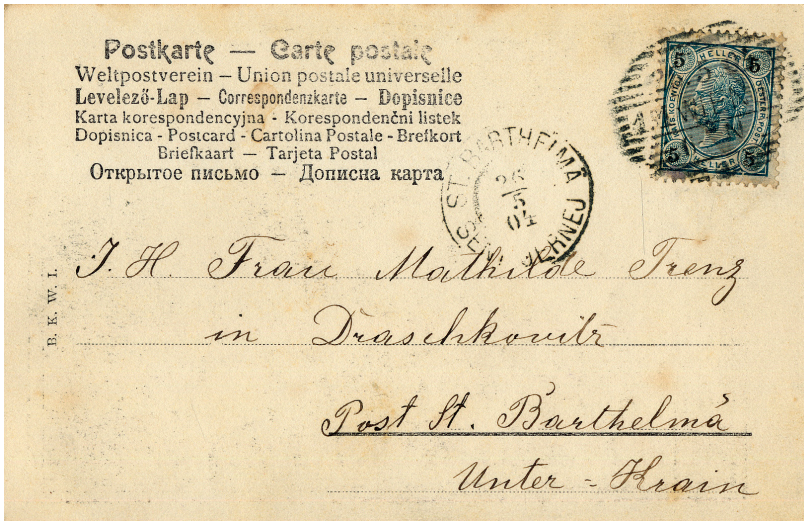 Postkarte — Carte postale
Weltpostverein – Union postale universelle
Levelező-Lap – Correspondenzkarte – Dopisnice
Karta korespondencyjna - Korespondenční listek
Dopisnica - Postcard - Cartolina Postale - Brefkort
Briefkaart — Tarjeta Postal
Открытое письмо – Дописна карта
5 HELLER 5
5 HELLER 5
ST. BARTHELMÄ
26
5
04
ŠENT JERNEJ
J. H. Frau Mathilde Trenz
in Draschkovitz
Post St. Barthelmä
Unter = Krain
B. K. W. I.